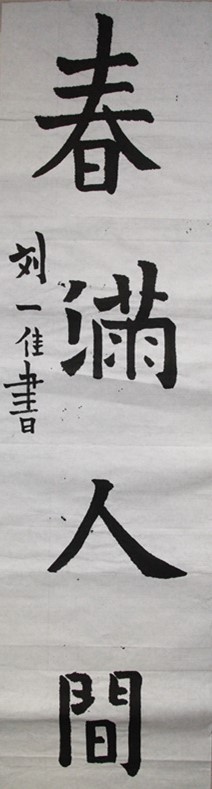 春滿人間
刘一佳書